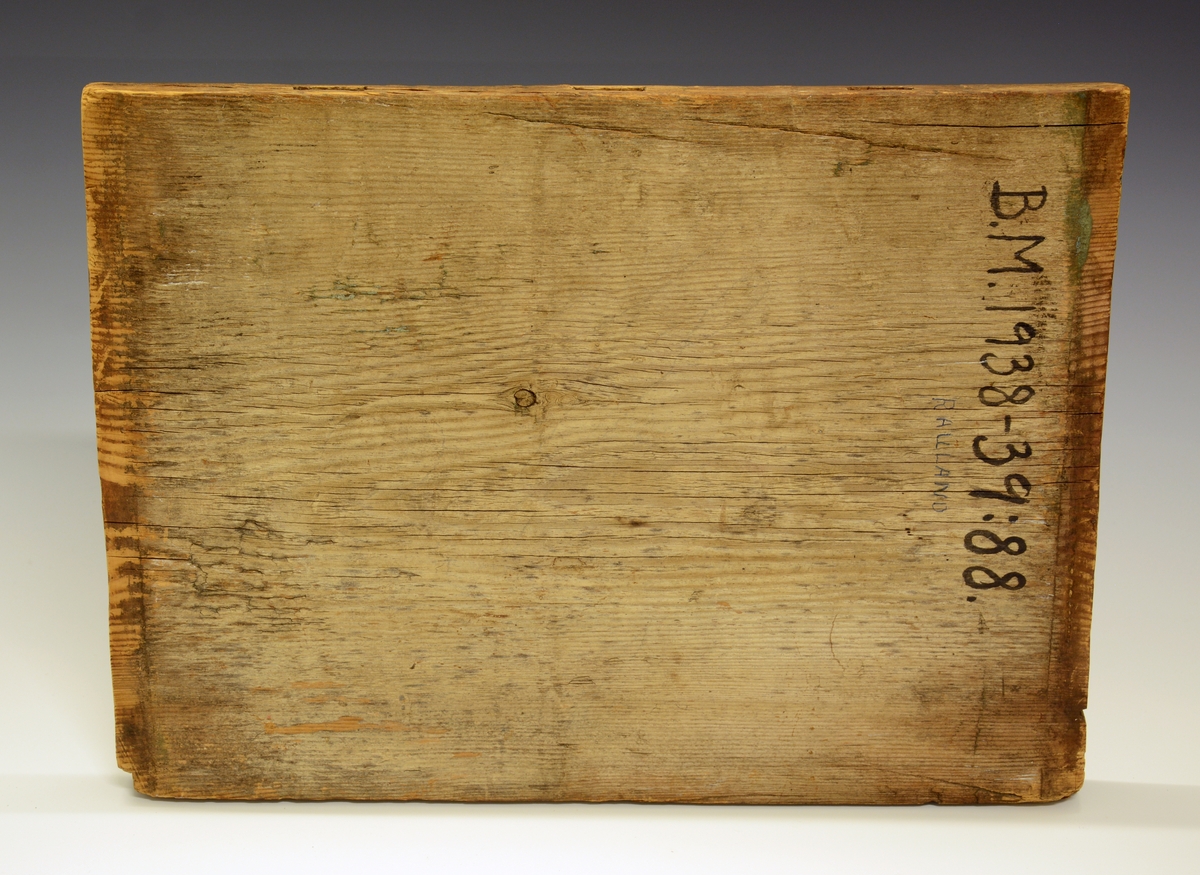 B.M. 1938-39:88.
RAULAND